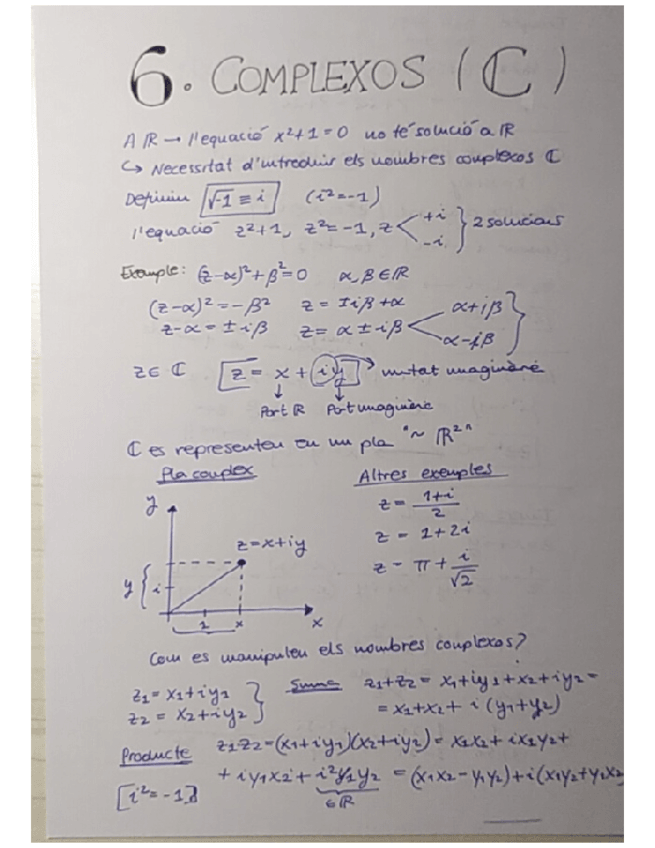 6. COMPLEXOS (ℂ)
A ℝ → l'equació x²+1=0 no té solució a ℝ
↳ Necessitat d'introduir els nombres complexos ℂ
Definim √-1 ≡ i (i²=-1)
l'equació z²+1, z²=-1, z < +i -i } 2 solucions
Exemple: (z-α)²+β²=0 α, β ∈ ℝ
(z-α)²=-β² z = ±iβ+α
z-α = ±iβ z = α ± iβ < α+iβ α-iβ }
z ∈ ℂ z = x + iy → unitat imaginària
Part ℝ Part imaginària
ℂ es representen en un pla "~ ℝ²"
Pla complex
y
z=x+iy
y { i
1 x x
Altres exemples
z = (1+i)/2
z = 1+2i
z = π + i/√2
Com es manipulen els nombres complexos?
z₁ = x₁+iy₁
z₂ = x₂+iy₂ }
Suma z₁+z₂ = x₁+iy₁+x₂+iy₂ =
= x₁+x₂+ i(y₁+y₂)
Producte z₁z₂=(x₁+iy₁)(x₂+iy₂)= x₁x₂+ ix₁y₂+
+ iy₁x₂+ i²y₁y₂ = (x₁x₂-y₁y₂)+i(x₁y₂+y₁x₂
∈ℝ
[i²=-1]